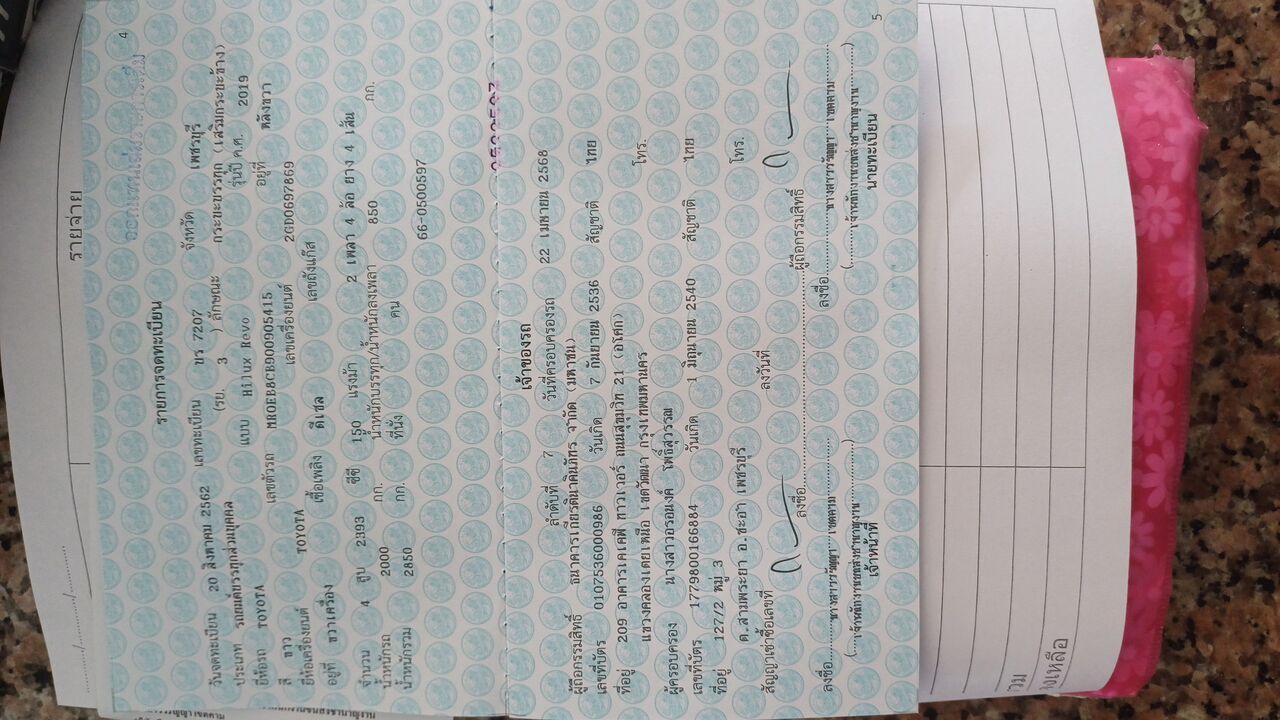 รายจ่าย
4
รายการจดทะเบียน
วันจดทะเบียน 20 สิงหาคม 2562 เลขทะเบียน บร 7207 จังหวัด เพชรบุรี
ประเภท รถยนต์บรรทุกส่วนบุคคล (รย. 3 ) ลักษณะ กระบะบรรทุก (เสริมกระบะข้าง)
ยี่ห้อรถ TOYOTA แบบ Hilux Revo รุ่นปี ค.ศ. 2019
สี ขาว เลขตัวรถ MR0EB8CB900905415 อยู่ที่ หลังขวา
ยี่ห้อเครื่องยนต์ TOYOTA เลขเครื่องยนต์ 2GD0697869
อยู่ที่ ขวาเครื่อง เชื้อเพลิง ดีเซล เลขถังแก๊ส
จำนวน 4 สูบ 2393 ซีซี 150 แรงม้า 2 เพลา 4 ล้อ ยาง 4 เส้น
น้ำหนักรถ 2000 กก. น้ำหนักบรรทุก/น้ำหนักลงเพลา 850 กก.
น้ำหนักรวม 2850 กก. ที่นั่ง คน
66-0500597
เจ้าของรถ
ลำดับที่ 7 วันที่ครอบครองรถ 22 เมษายน 2568
ผู้ถือกรรมสิทธิ์ ธนาคารเกียรตินาคินภัทร จำกัด (มหาชน)
เลขที่บัตร 0107536000986 วันเกิด 7 กันยายน 2536 สัญชาติ ไทย
ที่อยู่ 209 อาคารเคเคพี ทาวเวอร์ ถนนสุขุมวิท 21 (อโศก)
แขวงคลองเตยเหนือ เขตวัฒนา กรุงเทพมหานคร โทร.
ผู้ครอบครอง นางสาวอรอนงค์ โพธิ์สุวรรณ
เลขที่บัตร 1779800166884 วันเกิด 1 มิถุนายน 2540 สัญชาติ ไทย
ที่อยู่ 127/2 หมู่ 3
ต.สามพระยา อ.ชะอำ เพชรบุรี โทร.
สัญญาเช่าซื้อเลขที่ ลงวันที่
ลงชื่อ ผู้ถือกรรมสิทธิ์
ลงชื่อ ลงชื่อ
(เจ้าพนักงานขนส่งชำนาญงาน) (เจ้าพนักงานขนส่งชำนาญงาน)
เจ้าหน้าที่ นายทะเบียน
5